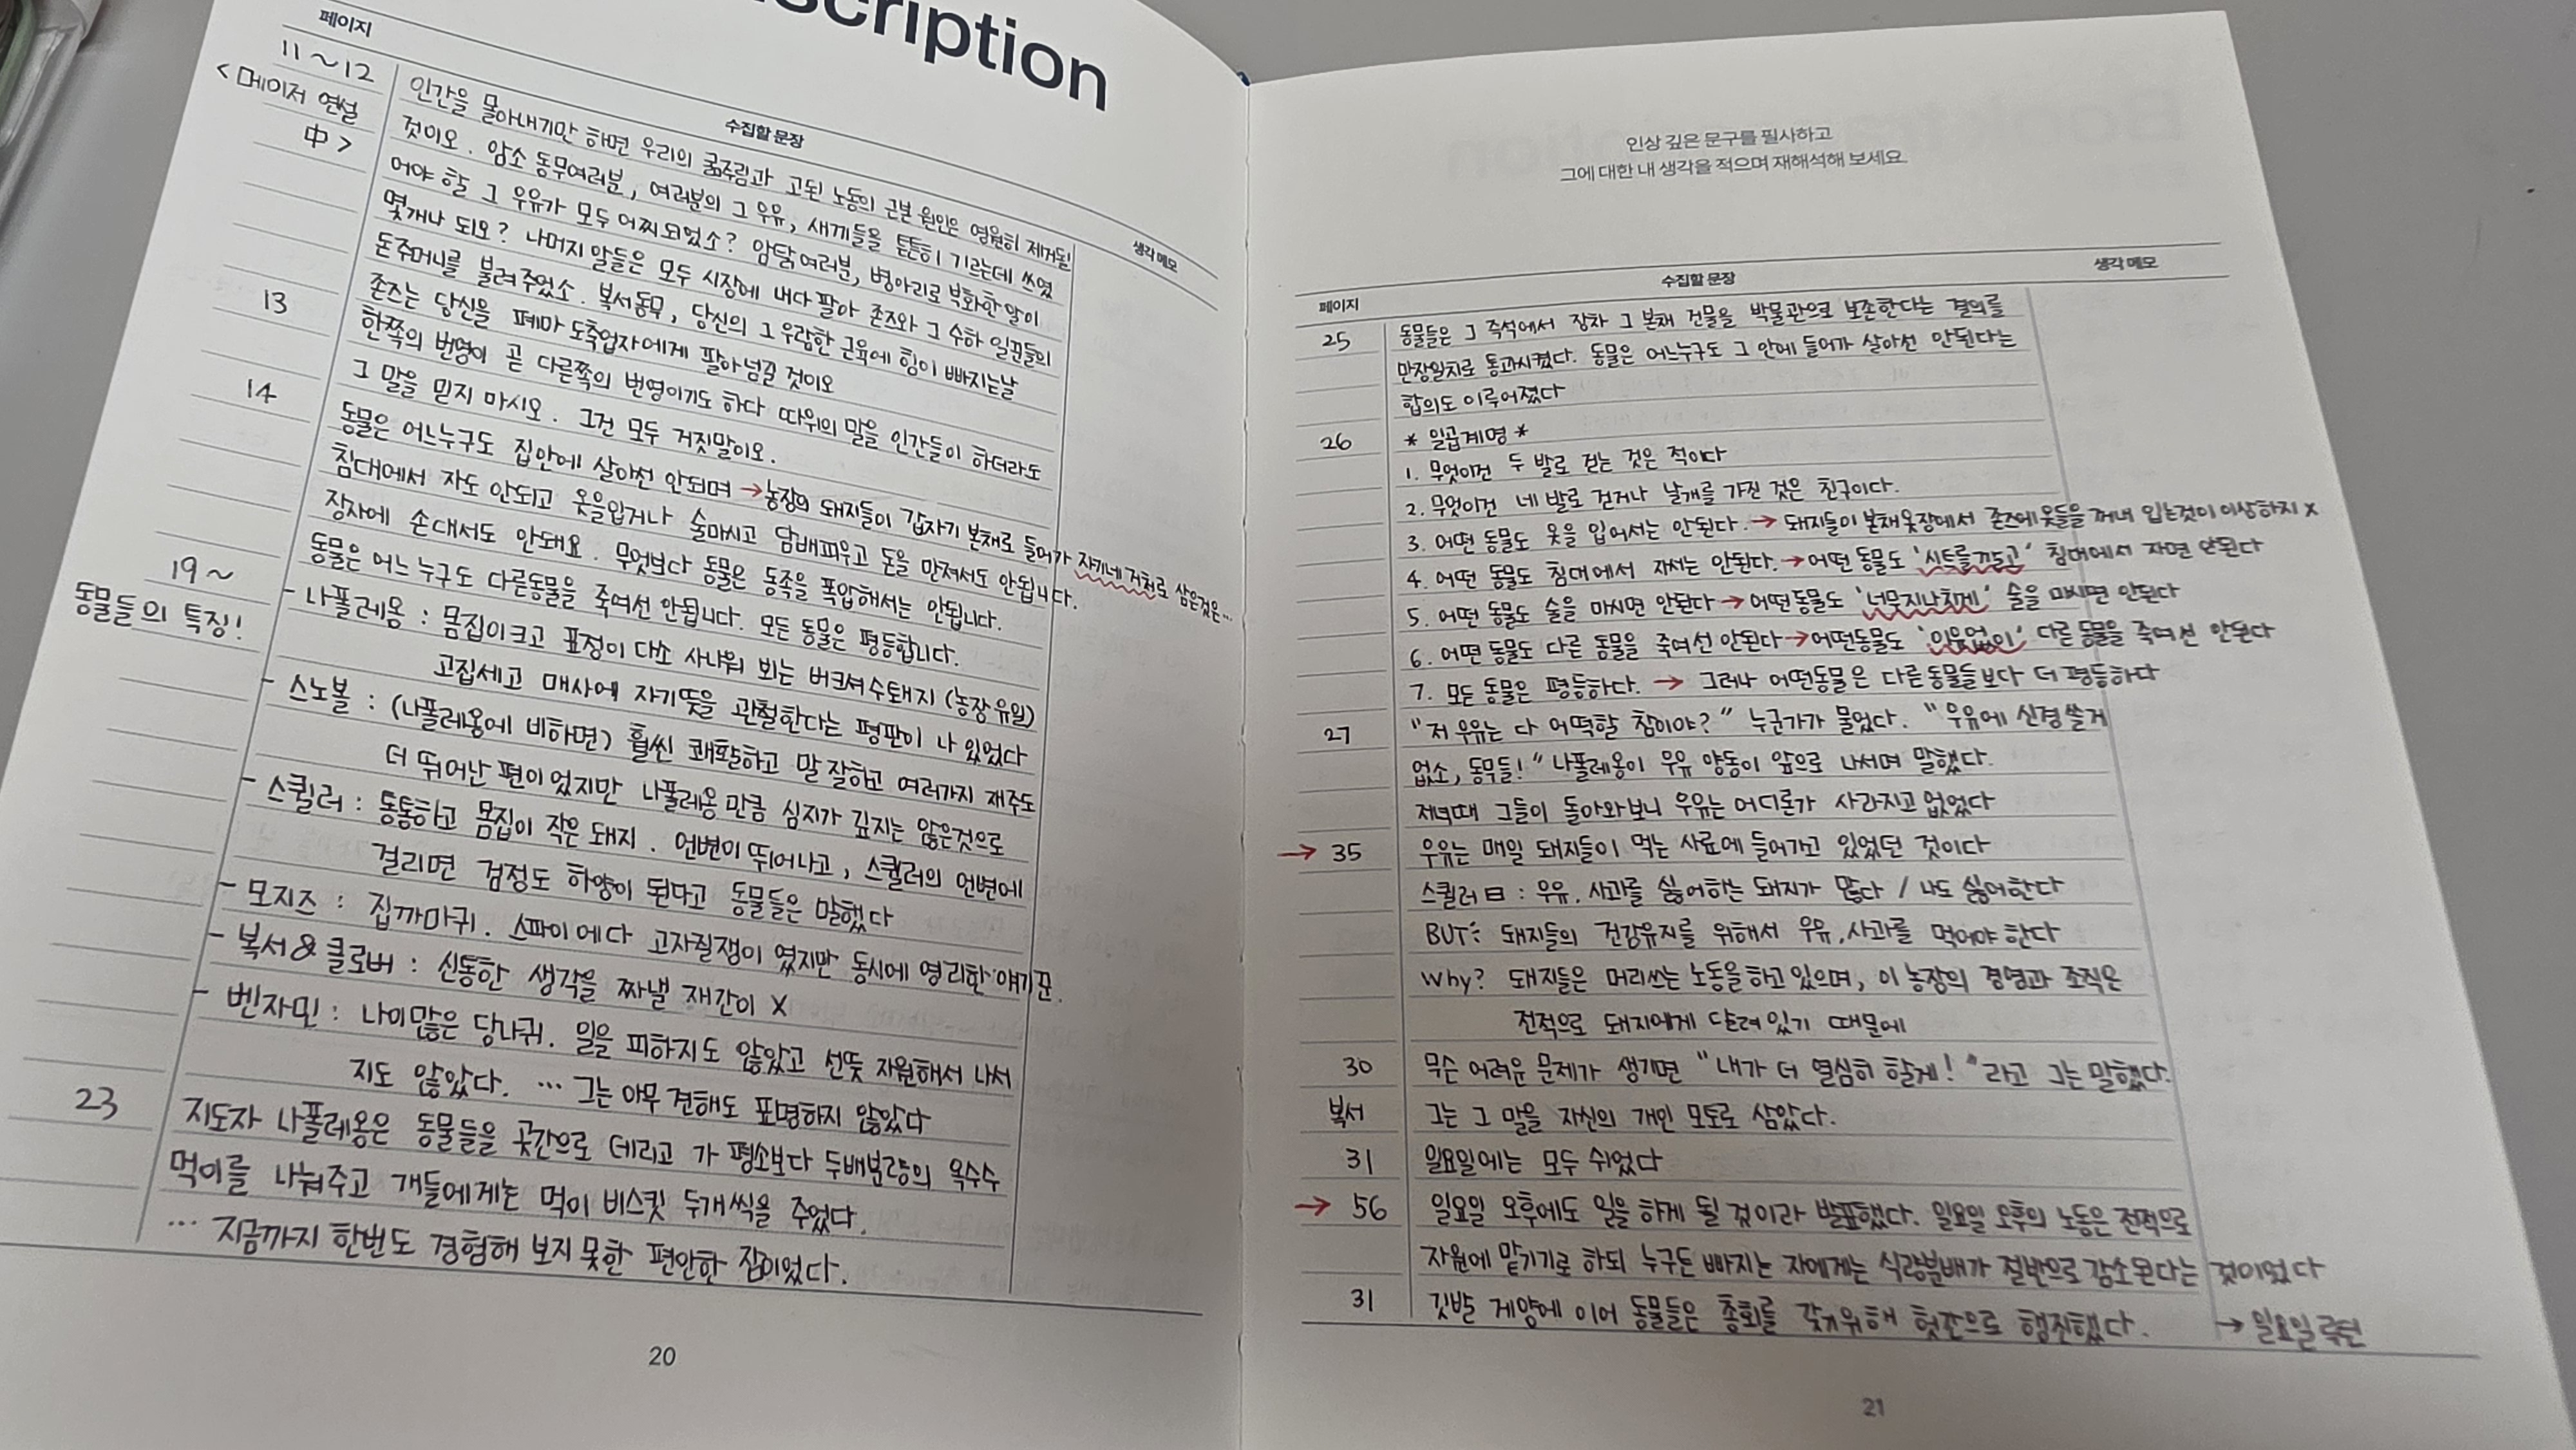 scription
페이지
수집할 문장
생각 메모
11~12
<메이저 연설
中>
인간을 몰아내기만 하면 우리의 굶주림과 고된 노동의 근본 원인은 영원히 제거될
것이오. 암소 동무여러분, 여러분의 그 우유, 새끼들을 튼튼히 기르는데 쓰였
어야 할 그 우유가 모두 어찌되었소? 암탉여러분, 병아리로 부화한 알이
몇개나 되오? 나머지 알들은 모두 시장에 내다 팔아 존즈와 그 수하 일꾼들의
돈주머니를 불려주었소. 복서동무, 당신의 그 우람한 근육에 힘이 빠지는날
존즈는 당신을 폐마 도축업자에게 팔아넘길 것이오
13
한쪽의 번영이 곧 다른쪽의 번영이기도 하다 따위의 말을 인간들이 하더라도
그 말을 믿지 마시오. 그건 모두 거짓말이오.
14
동물은 어느누구도 집안에 살아선 안되며 → 농장의 돼지들이 갑자기 본채로 들어가 자기네 거처로 삼은것은...
침대에서 자도 안되고 옷을입거나 술마시고 담배피우고 돈을 만져서도 안됩니다.
장사에 손대서도 안돼요. 무엇보다 동물은 동족을 폭압해서는 안됩니다.
동물은 어느 누구도 다른동물을 죽여선 안됩니다. 모든 동물은 평등합니다.
19~
동물들의 특징!
- 나폴레옹 : 몸집이크고 표정이 다소 사나워 뵈는 버크셔수퇘지 (농장유일)
고집세고 매사에 자기뜻을 관철한다는 평판이 나 있었다
- 스노볼 : (나폴레옹에 비하면) 훨씬 쾌활하고 말 잘하고 여러가지 재주도
더 뛰어난 편이었지만 나폴레옹만큼 심지가 깊지는 않은것으로
- 스퀼러 : 통통하고 몸집이 작은 돼지. 언변이 뛰어나고, 스퀼러의 언변에
걸리면 검정도 하양이 된다고 동물들은 말했다
- 모지즈 : 집까마귀. 스파이에다 고자질쟁이 였지만 동시에 영리한 얘기꾼.
- 복서&클로버 : 신통한 생각을 짜낼 재간이 X
- 벤자민 : 나이많은 당나귀. 일을 피하지도 않았고 선뜻 자원해서 나서
지도 않았다. ... 그는 아무 견해도 표명하지 않았다
23
지도자 나폴레옹은 동물들을 곳간으로 데리고 가 평소보다 두배분량의 옥수수
먹이를 나눠주고 개들에게는 먹이 비스킷 두개씩을 주었다.
... 지금까지 한번도 경험해 보지 못한 편안한 잠이었다.
20
인상 깊은 문구를 필사하고
그에 대한 내 생각을 적으며 재해석해 보세요.
페이지
수집할 문장
생각 메모
25
동물들은 그 즉석에서 장차 그 본채 건물을 박물관으로 보존한다는 결의를
만장일치로 통과시켰다. 동물은 어느누구도 그 안에 들어가 살아선 안된다는
합의도 이루어졌다
26
* 일곱계명 *
1. 무엇이건 두 발로 걷는 것은 적이다
2. 무엇이건 네 발로 걷거나 날개를 가진 것은 친구이다.
3. 어떤 동물도 옷을 입어서는 안된다. → 돼지들이 본채옷장에서 존즈에옷들을 꺼내 입는것이 이상하지 X
4. 어떤 동물도 침대에서 자서는 안된다. → 어떤 동물도 '시트를깔고' 침대에서 자면 안된다
5. 어떤 동물도 술을 마시면 안된다 → 어떤동물도 '너무지나치게' 술을 마시면 안된다
6. 어떤 동물도 다른 동물을 죽여선 안된다 → 어떤동물도 '이유없이' 다른 동물을 죽여선 안된다
7. 모든 동물은 평등하다. → 그러나 어떤동물은 다른동물들보다 더 평등하다
27
"저 우유는 다 어떡할 참이야?" 누군가가 물었다. "우유에 신경쓸거
없소, 동무들!" 나폴레옹이 우유 양동이 앞으로 나서며 말했다.
저녁때 그들이 돌아와보니 우유는 어디론가 사라지고 없었다
→ 35
우유는 매일 돼지들이 먹는 사료에 들어가고 있었던 것이다
스퀼러 曰 : 우유, 사과를 싫어하는 돼지가 많다 / 나도 싫어한다
BUT: 돼지들의 건강유지를 위해서 우유,사과를 먹어야 한다
Why? 돼지들은 머리쓰는 노동을하고있으며, 이 농장의 경영과 조직은
전적으로 돼지에게 달려있기 때문에
30
무슨 어려운 문제가 생기면 "내가 더 열심히 할게!"라고 그는 말했다.
복서
그는 그 말을 자신의 개인 모토로 삼았다.
31
일요일에는 모두 쉬었다
→ 56
일요일 오후에도 일을 하게 될 것이라 발표했다. 일요일 오후의 노동은 전적으로
자원에 맡기기로 하되 누구든 빠지는 자에게는 식량분배가 절반으로 감소된다는 것이었다
31
깃발 게양에 이어 동물들은 총회를 갖기위해 헛간으로 행진했다.
→ 일요일
21